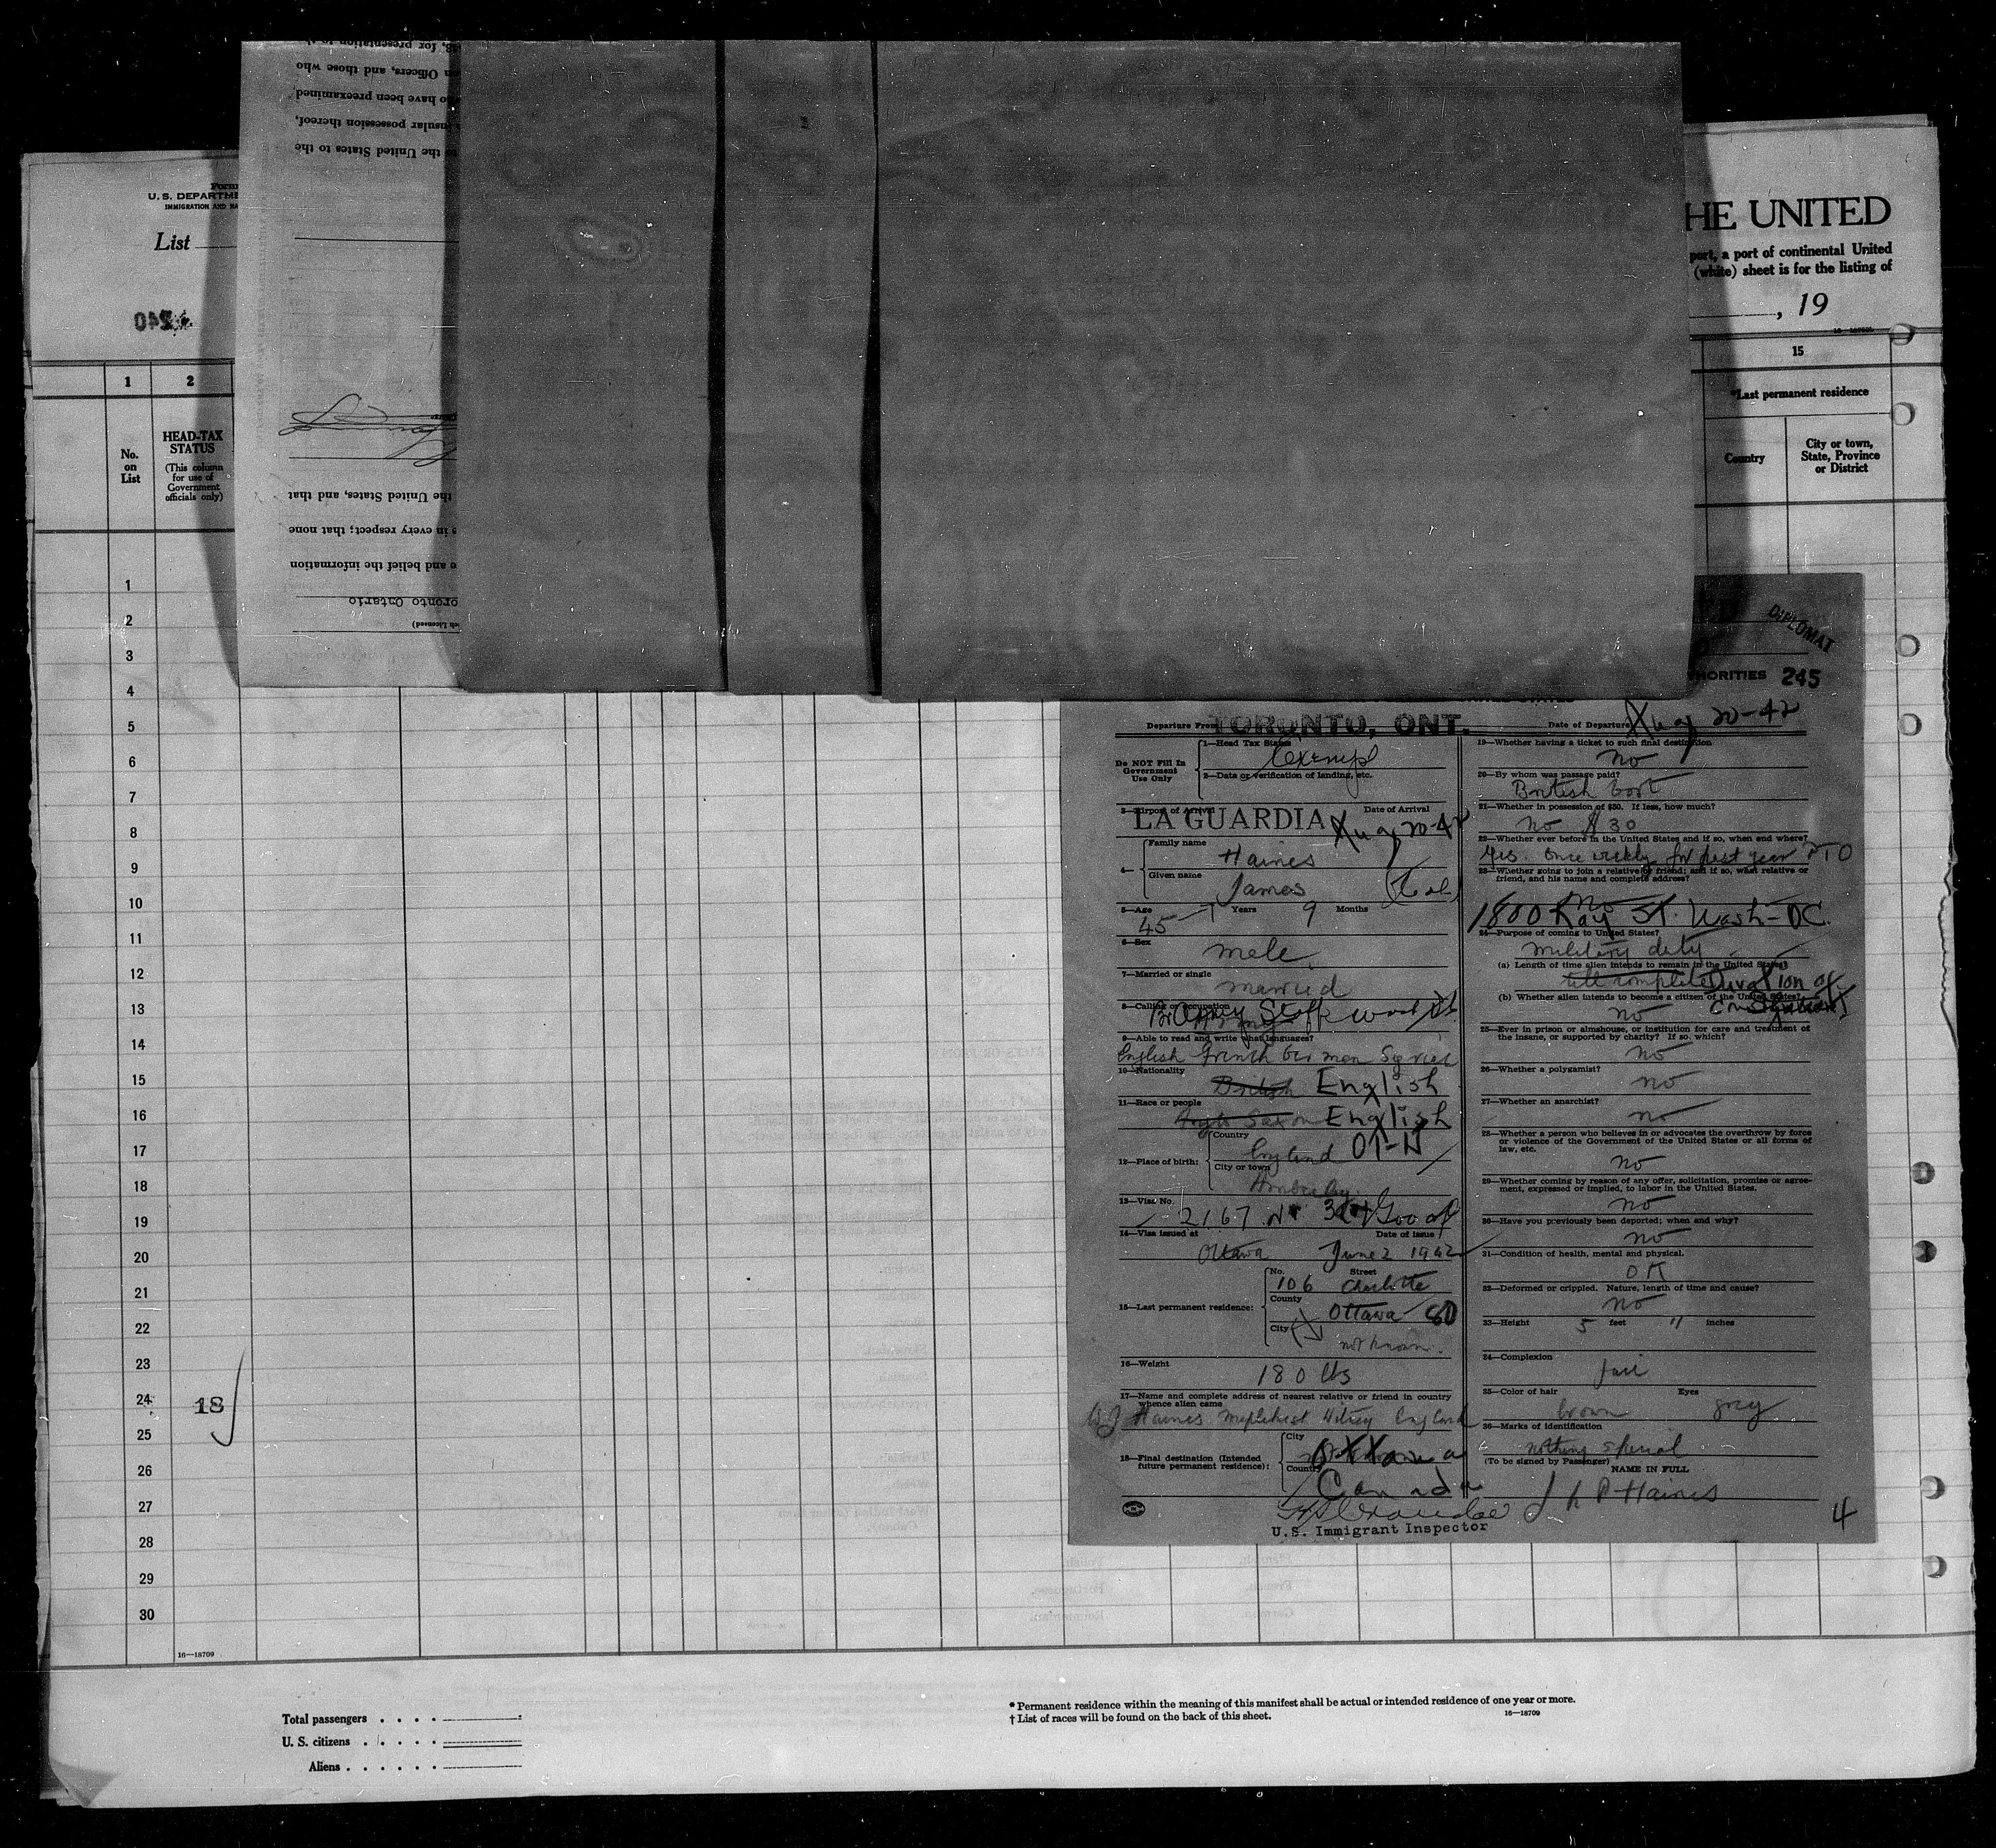 Form
U.S. DEPARTME
IMMIGRATION AND NA
List
240
HE UNITED
port, a port of continental United
(white) sheet is for the listing of
, 19
1
2
15
*Last permanent residence
No.
on
List
HEAD-TAX
STATUS
(This column
for use of
Government
officials only)
Country
City or town,
State, Province
or District
for presentation
on Officers, and those who
have been preexamined
insular possession thereof,
to the United States to the
the United States, and that
in every respect; that none
and belief the information
oronto Ontario
1
2
3
4
5
6
7
8
9
10
11
12
13
14
15
16
17
18
19
20
21
22
23
24
18
25
26
27
28
29
30
16—18709
DIPLOMAT
HORITIES 245
Departure From TORONTO, ONT.
Date of Departure Aug 20-42
Do NOT Fill In
Government
Use Only
1—Head Tax Status
Exempt
2—Data or verification of landing, etc.
3—Airport of Arrival
Date of Arrival
LA GUARDIA Aug 20-42
4—
Family name
Haines
Given name
James (Col)
5—Age
45 Years 9 Months
6—Sex
male
7—Married or single
married
8—Calling or occupation
Army Staff
9—Able to read and write what languages?
English French German
10—Nationality
British English
11—Race or people
Anglo Saxon English
12—Place of birth:
Country
England
City or town
13—Visa No.
2167
14—Visa issued at
Date of issue
Ottawa June 2 1942
15—Last permanent residence:
No.
Street
106 Charlotte
County
Ottawa
City
not known.
16—Weight
180 lbs
17—Name and complete address of nearest relative or friend in country
whence alien came
Haines England
18—Final destination (Intended
future permanent residence):
City
Ottawa
Country
Canada
U.S. Immigrant Inspector
19—Whether having a ticket to such final destination
no
20—By whom was passage paid?
British Govt
21—Whether in possession of $50. If less, how much?
no $30
22—Whether ever before in the United States and if so, when and where?
Yes. Once weekly for past year PTO
23—Whether going to join a relative or friend; and if so, what relative or
friend, and his name and complete address?
no
1800 Kay St. Wash-DC.
24—Purpose of coming to United States?
military duty
(a) Length of time alien intends to remain in the United States?
till complete Duration of
(b) Whether alien intends to become a citizen of the United States?
no
25—Ever in prison or almshouse, or institution for care and treatment of
the insane, or supported by charity? If so, which?
no
26—Whether a polygamist?
no
27—Whether an anarchist?
no
28—Whether a person who believes in or advocates the overthrow by force
or violence of the Government of the United States or all forms of
law, etc.
no
29—Whether coming by reason of any offer, solicitation, promise or agree-
ment, expressed or implied, to labor in the United States.
no
30—Have you previously been deported; when and why?
no
31—Condition of health, mental and physical.
OK
32—Deformed or crippled. Nature, length of time and cause?
no
33—Height 5 feet 11 inches
34—Complexion
fair
35—Color of hair
Eyes
brown grey
36—Marks of identification
nothing special
(To be signed by Passenger)
NAME IN FULL
Haines
4
Total passengers . . . .
U. S. citizens . . . . .
Aliens . . . . . .
* Permanent residence within the meaning of this manifest shall be actual or intended residence of one year or more.
† List of races will be found on the back of this sheet.
16—18709